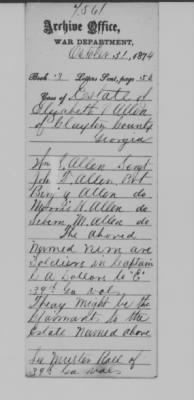 7561
Archive Office,
WAR DEPARTMENT,
October 31, 1874
Book 7 Letters Sent, page 56
Case of Estate of
Elizabeth Allen
of Clayton County
Georgia
Wm G. Allen Sergt
Joh T. Allen Pvt
Benj Allen do
Morris H. Allen do
M. Allen do
The above
Named men are
Soldiers in Captain
L A Dollon Co "E"
39th Ga vols
Theay might be the
Claimants to the
Estate Named above
See Muster Roll of
39th Ga vols